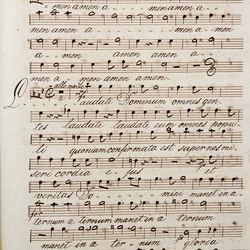 men amen a - - - men amen a - -
a - men amen amen a - - -
men a - men amen amen.
Laudate Dominum omnes gen
tes laudate laudate eum omnes popu
li quoniam confirmata est super nos mi
seri cordia e - jus et
veritas Do - - mini manet in a
ternum a ternum manet in a ternum
manet in a ter - num gloria